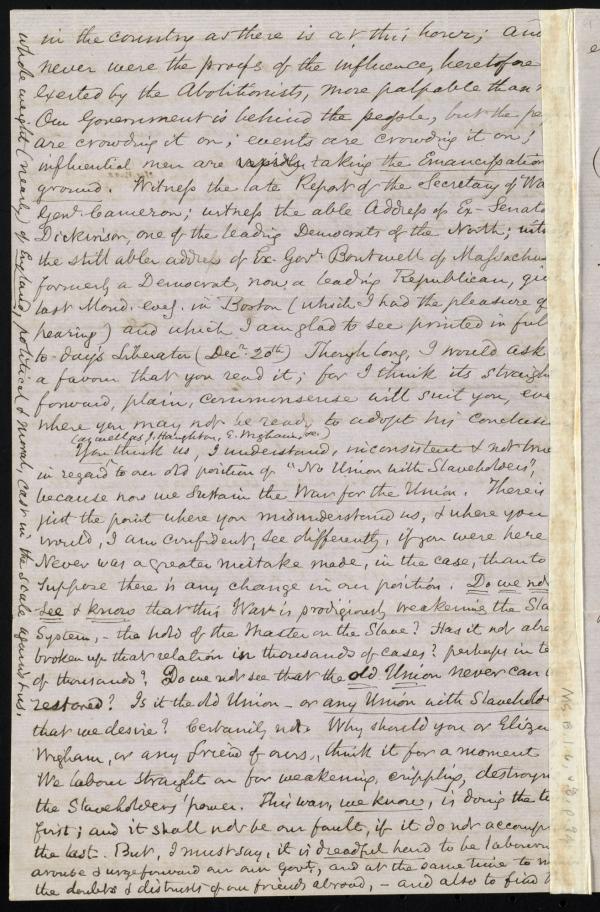 in the country as there is at this hour; and
never were the proofs of the influence, heretofore
exerted by the Abolitionists, more palpable than
Our Government is behind the people, but the
are crowding it on; events are crowding it on;
influential men are rapidly taking the Emancipation
ground. Witness the late Report of the Secretary of
Genl. Cameron; witness the able Address of Ex-
Dickinson, one of the leading Democrats of the North;
the still abler address of Ex. Govr. Boutwell of
formerly a Democrat, now a leading Republican,
last Mond. eveg. in Boston (which I had the pleasure of
hearing) and which I am glad to see printed in full
to-day's Liberator (Decr. 20th) Though long, I would ask
a favour that you read it; for I think its
forward, plain, commonsense will suit you,
where you may not be ready to adopt his
(as well as J. Haughton, E. Wigham, &c)
You think us, I understand, inconsistent & not true
in regard to our old position of "No Union with Slaveholders",
because now we sustain the War for the Union. There is
just the point where you misunderstand us, & where you
would, I am confident, see differently, if you were here
Never was a greater mistake made, in the case, than to
suppose there is any change in our position. Do we not
see & know that this War is prodigiously weakening the
System, - the hold of the Master on the Slave? Has it not
broken up that relation in thousands of cases? perhaps in
of thousands? Do we not see that the old Union never can
restored? Is it the old Union - or any Union with
that we desire? Certainly not. Why should you or
Wigham, or any friend of ours, think it for a moment
We labour straight on for weakening, crippling,
the Slaveholders' power. This war, we know, is doing the
first; and it shall not be our fault, if it do not
the last. But, I must say, it is dreadful hard to be
arouse & urge forward our own Govt., and at the same time to
the doubts & distrusts of our friends abroad, - and also to find
whole weight (nearly) of England, political & moral, cast in the scale against us.